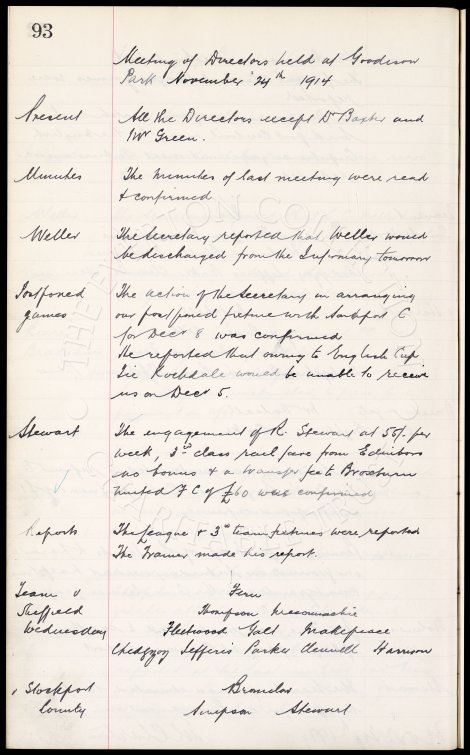 93
Meeting of Directors held at Goodison
Park November 24th 1914
Present All the Directors except Dr Baxter and
Mr Green.
Minutes The Minutes of last meeting were read
& confirmed
Weller The Secretary reported that Weller would
be discharged from the Infirmary tomorrow
Postponed The action of the Secretary in arranging
games our postponed fixture with Stockport C
for Decr 8 was confirmed
He reported that owing to English Cup
Tie Rochdale would be unable to receive
us on Decr 5.
Stewart The engagement of R. Stewart at 55/- per
week, 3rd class rail fare from Edinboro
as bonus & a transfer fee to Broxburn
United F C of £60 was confirmed
Reports The League & 3rd team fixtures were reported
The Trainer made his report.
Team v Fern
Sheffield Thompson Maconnachie
Wednesday Fleetwood Galt Makepeace
Chedgzoy Jefferis Parker Clennell Harrison
v Stockport Bromilow
County Simpson Stewart